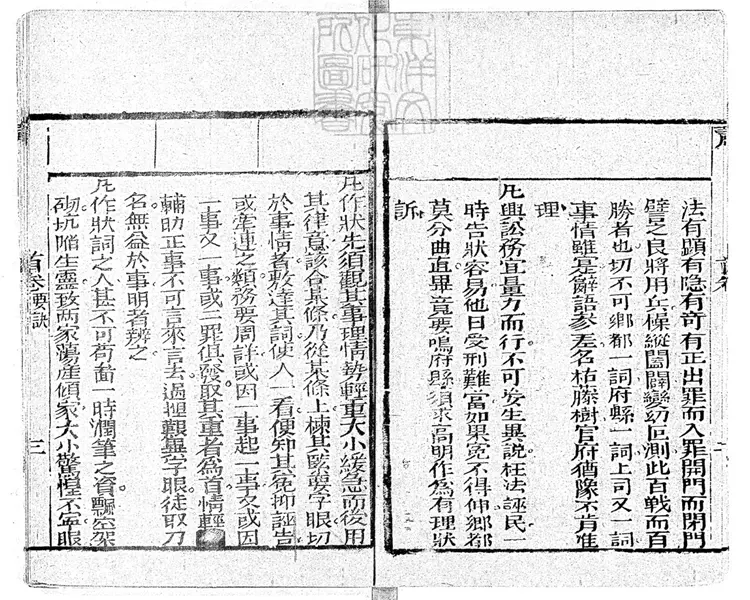 法有顕有隐有竒有正出罪而入罪開門而閉門
譬之良將用兵操縱闔闢變幻叵測此百戰而百
勝者也切不可鄉都一詞府縣一詞上司又一詞
事情雖是辭語參差名枯藤樹官府猶豫不肯准
理
凡與訟務宜量力而行不可妄生異説枉法誣民一
時告狀容易他日受刑難當如果寃不得伸鄉都
莫分曲直畢竟要鳴府縣須求高明作爲有理狀
訴
凡作狀先須觀其事理情勢輕重大小緩急而後用
其律意該合某條乃從某條上楝其緊要字眼切
於事情者敷達其詞使人一看便知其寃抑誣告
或牽連之類務要周詳或因一事起一事又或因
一事又一事或二罪俱發取其重者爲首情輕
輔助正事不可言來言去過揰觀字眼徒取刀
名無益於事明者辨之
凡作狀詞之人甚不可苟啚一時潤筆之資飄空架
砌坑陷生靈致兩家蕩産傾家大小驚惶不寧眼
首卷 要訣
三